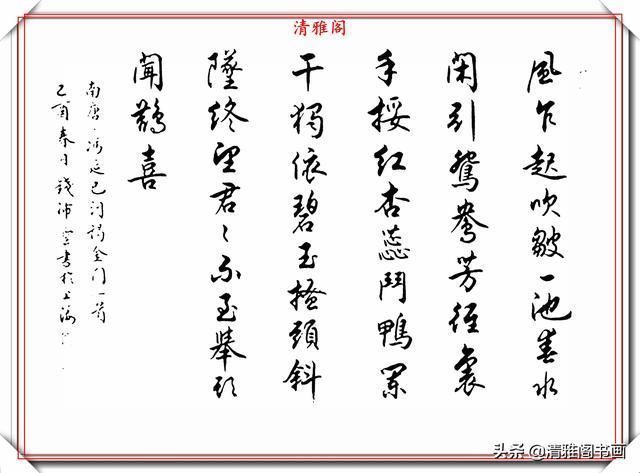 清雅阁
風乍起吹皺一池春水
閑引鴛鴦芳徑裏
手挼紅杏蕊鬥鴨闌
干獨依碧玉搔頭斜
墜終望君〻不至舉頭
聞鵲喜
南唐、冯延巳词谒金门一首
己酉春日錢沛雲書於上海
头条 @清雅阁书画